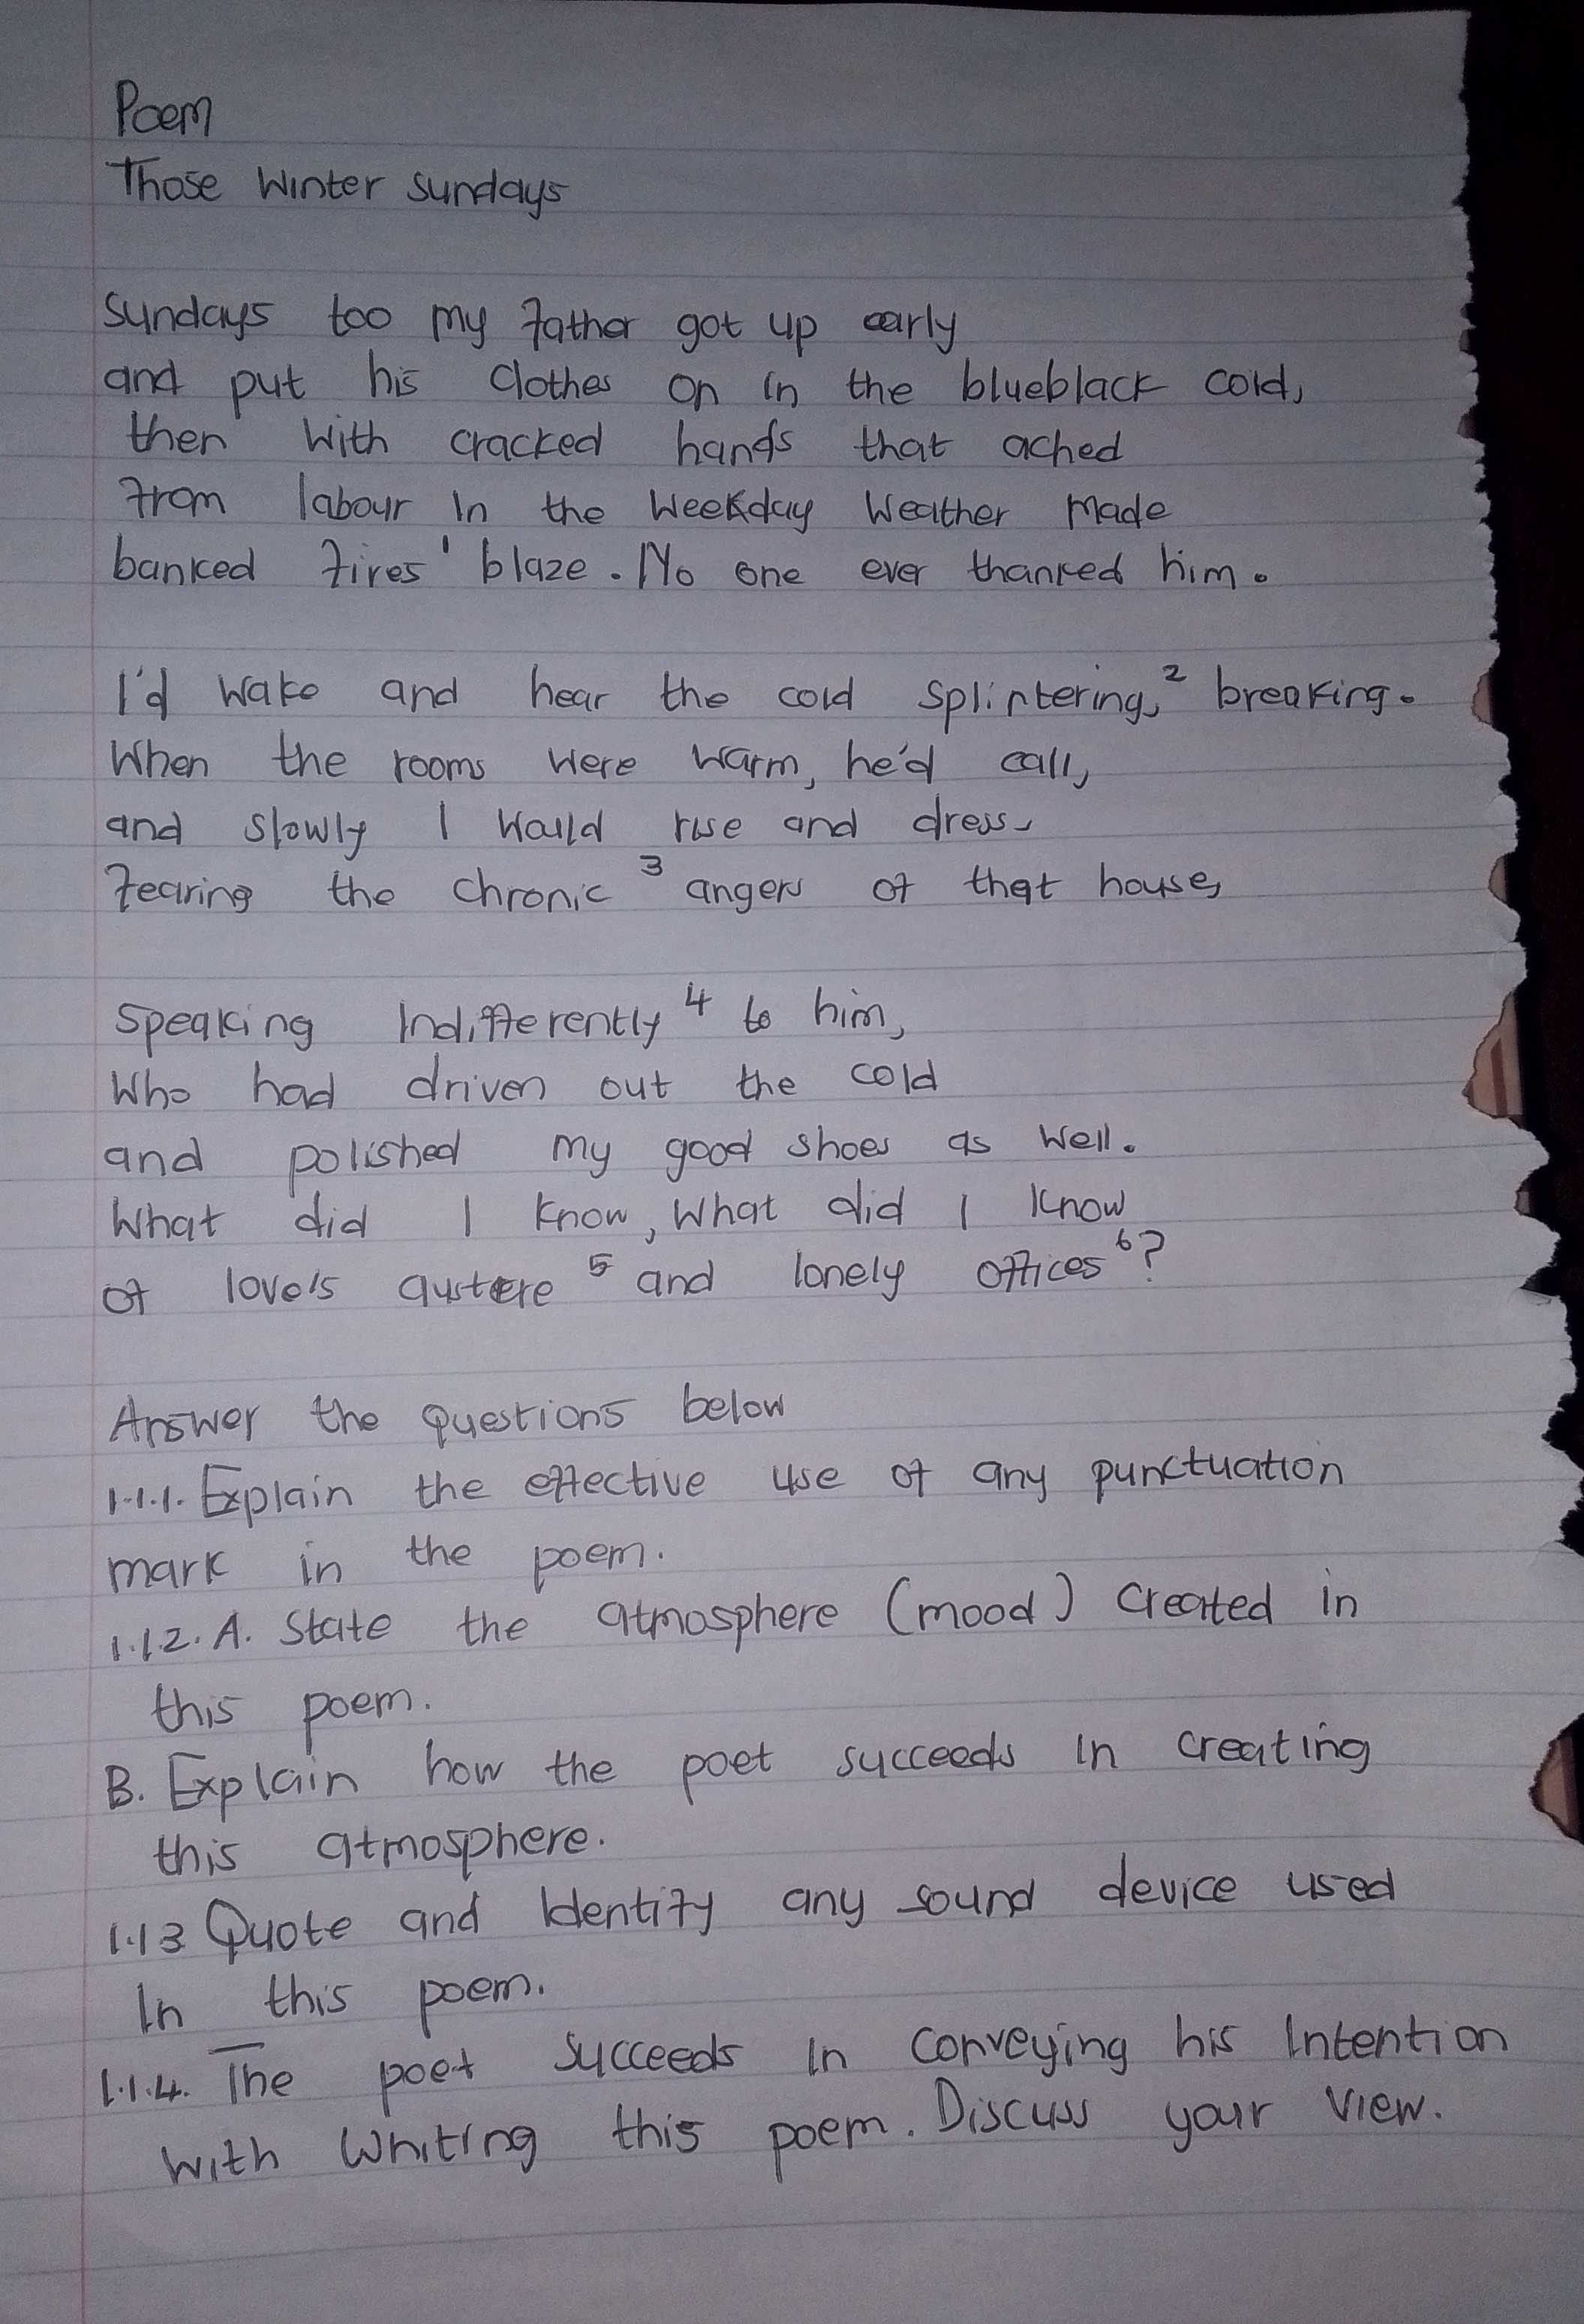 Poem
Those Winter Sundays
Sundays too my father got up early
and put his clothes on in the blueblack cold,
then with cracked hands that ached
from labour in the weekday weather made
banked fires' blaze. No one ever thanked him.
I'd wake and hear the cold splintering,² breaking.
When the rooms were warm, he'd call,
and slowly I would rise and dress,
fearing the chronic ³ angers of that house,
Speaking Indifferently ⁴ to him,
Who had driven out the cold
and polished my good shoes as well.
What did I know, What did I know
of love's austere ⁵ and lonely offices⁶?
Answer the questions below
1.1.1. Explain the effective use of any punctuation
mark in the poem.
1.1.2. A. State the atmosphere (mood) created in
this poem.
B. Explain how the poet succeeds in creating
this atmosphere.
1.1.3 Quote and Identify any sound device used
In this poem.
1.1.4. The poet succeeds in conveying his Intention
with Whiting this poem. Discuss your view.